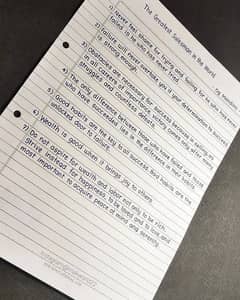 The Greatest Salesman in the World
1) Never feel shame for trying and failing for he who has never
failed is he who has never tried.
2) Failure will never overtake you if your determination to succeed
is strong enough.
3) Obstacles are necessary for success because in selling, as
in all careers of importance, victory comes only after many
struggles and countless defeats.
4) The only difference between those who have failed and those
who have succeeded lies in the difference of their habits.
5) Good habits are the key to all success. Bad habits are the
unlocked door to failure.
6) Wealth is good when it brings joy to others.
7) Do not aspire for wealth and labor not only to be rich.
Strive instead for happiness, to be loved and to love, and
most important to acquire peace of mind and serenity.